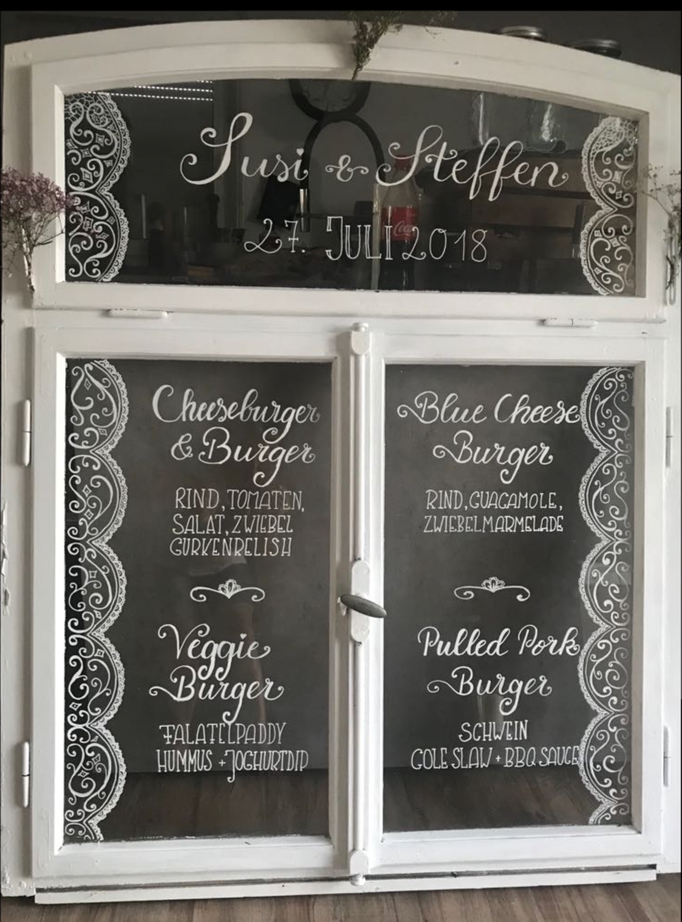 Susi & Steffen
27. JULI 2018
Cheeseburger
& Burger
RIND, TOMATEN,
SALAT, ZWIEBEL
GURKENRELISH
Veggie
Burger
FALAFELPADDY
HUMMUS + JOGHURTDIP
Blue Cheese
Burger
RIND, GUACAMOLE,
ZWIEBELMARMELADE
Pulled Pork
Burger
SCHWEIN
COLE SLAW + BBQ SAUCE